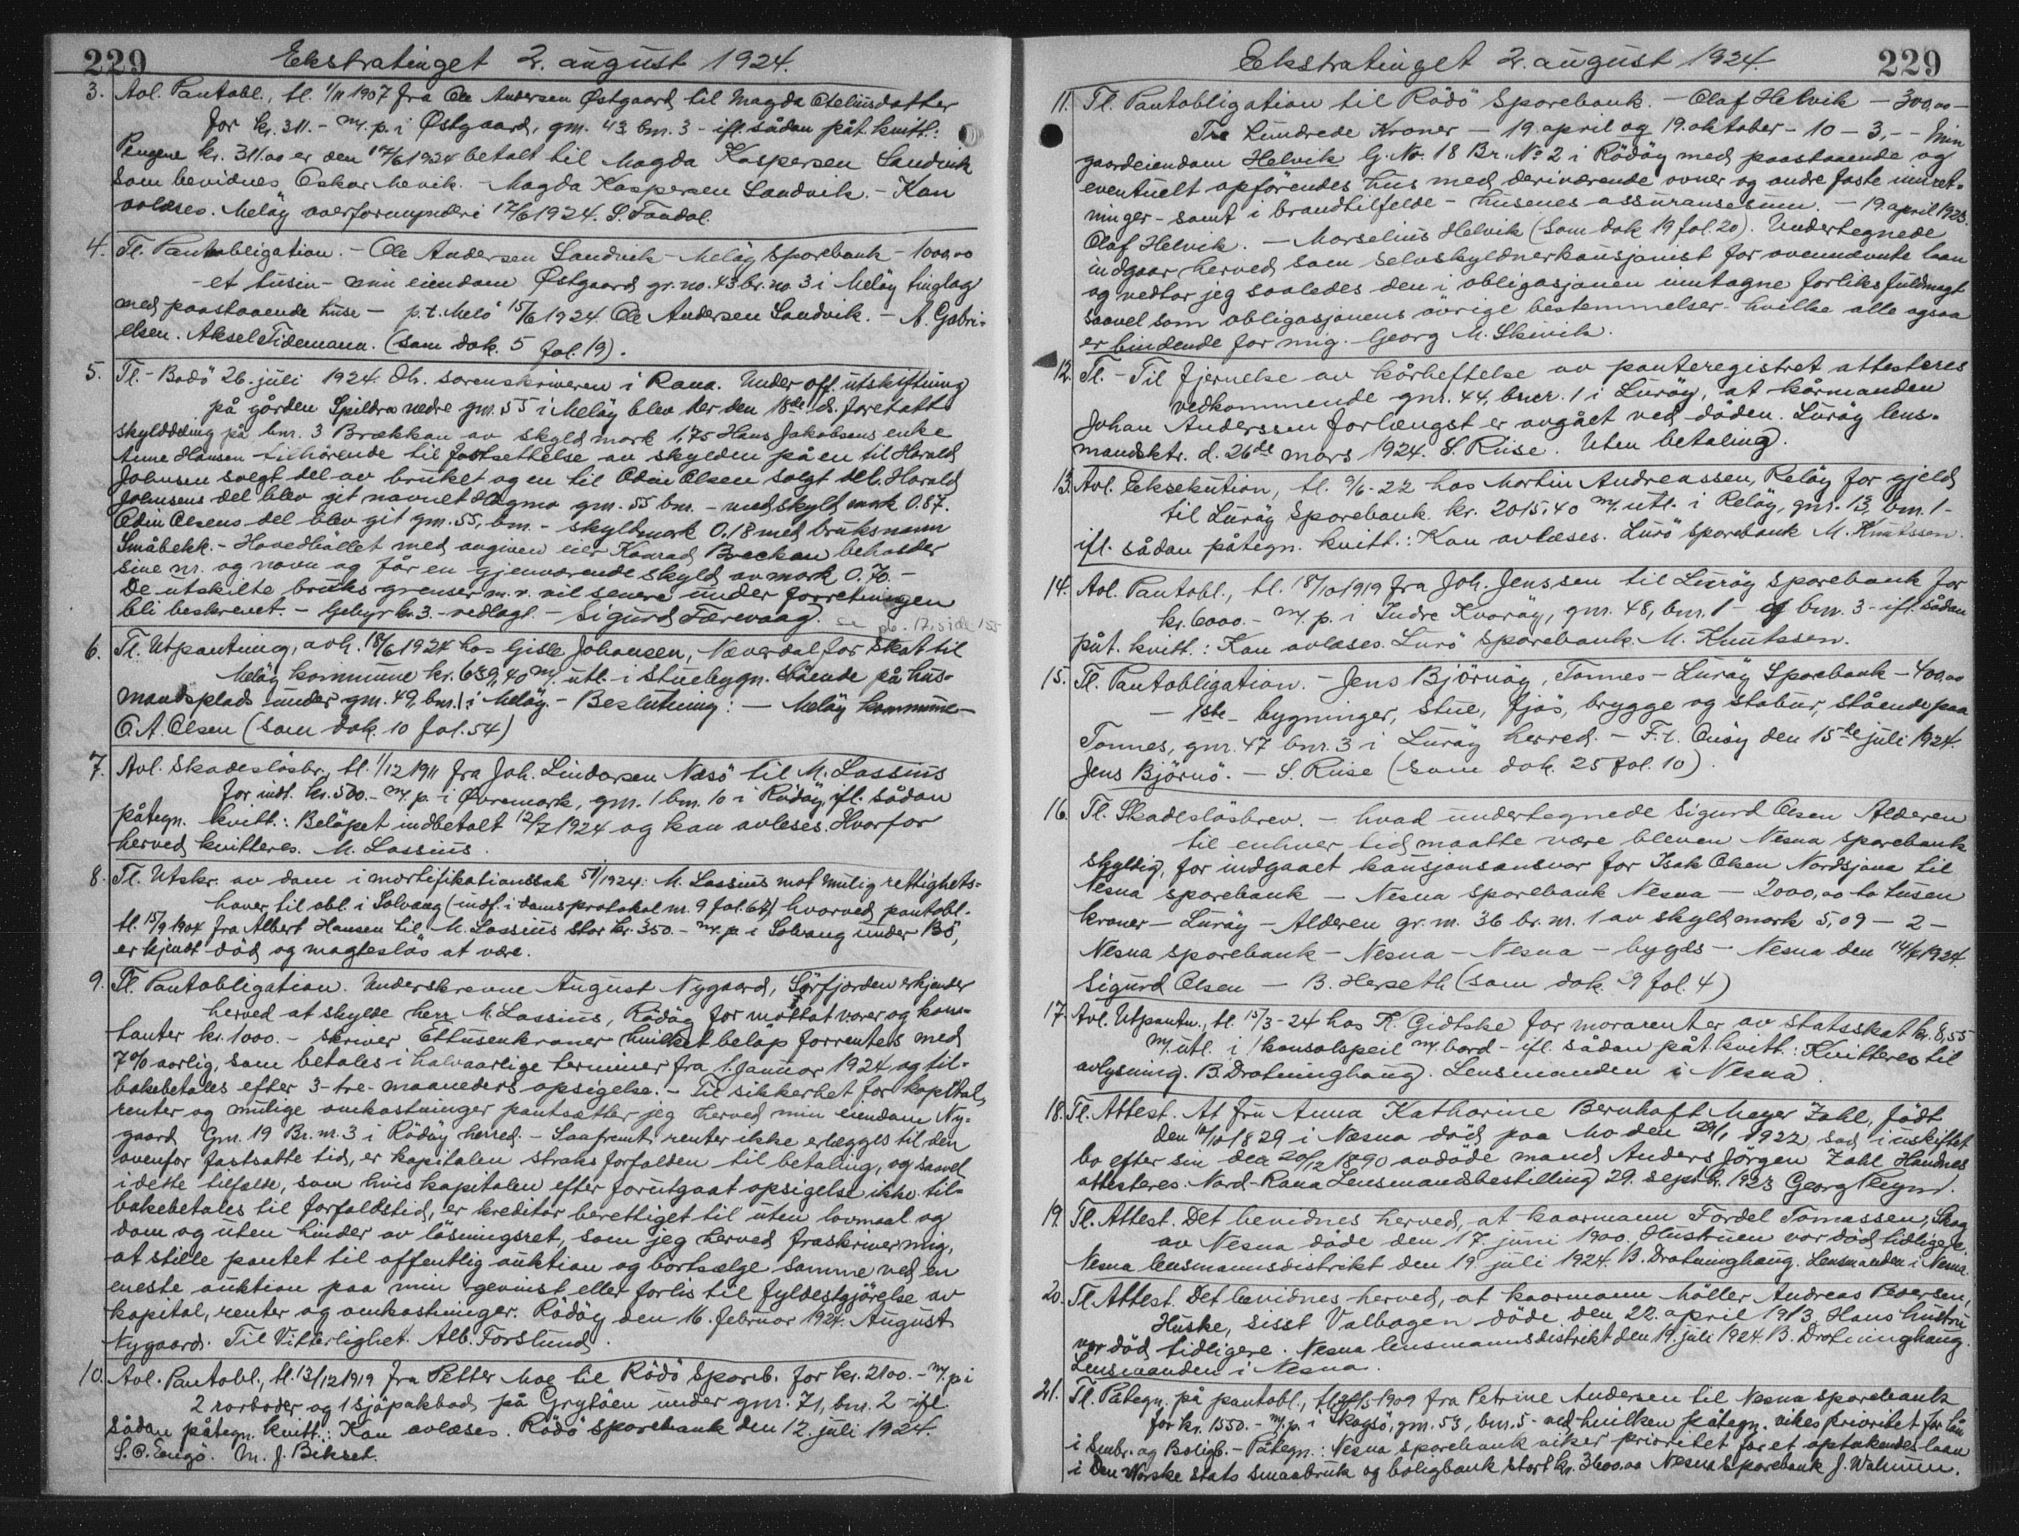 229
Ekstratinget 2. august 1924.
3. Avl. Pantobl., tl. 1/11 1907 fra Ole Andersen Østgaard til Magda
for kr. 311.- m/ p. i Østgaard, gnr. 43 bnr. 3 - ifl. sådan påt. kvitt:
Pengene kr. 311.00 er den 17/6 1924 betalt til Magda Kaspersen Sandvik
som bevidnes Oskar Mevik. - Magda Kaspersen Sandvik. - Kan
avlæses. Meløy overformynderi 17/6 1924. S. Tandal.
4. Tl. Pantobligation. - Ole Andersen Sandvik - Meløy sparebank - 1000,00
- et tusin - min eiendom Østgaard gr. no. 43 br. no. 3 i Meløy tinglag
med paastaaende huse - p.t. Melö 15/6 1924. Ole Andersen Sandvik. - A. Gabri-
elsen. Aksel Tidemann. (som dok. 5 fol. 19).
5. Tl. - Bodö 26. juli 1924. Dh. sorenskriveren i Rana. Under off. utskiftning
på gården Spildra nedre gnr. 55 i Meløy blev der den 18de ds. foretatt
skylddeling på bnr. 3 Brækkan av skyld mark 1,75 Hans Jakobsens enke
Anne Hansen tilhörende til fastsettelse av skylden på en til Harald
Johnsen solgt del av bruket og en til Odin Olsen solgt del. Harald
Johnsens del blev git navnet Dagmo gnr. 55 bnr. - med skyld mark 0.87.
Odin Olsens del blev git gnr. 55, bnr. - skyldmark 0.18 med bruksnavn
Småbekk. - Hovedbøllet med angiven eier Konrad Breckan beholder
sine nr. og navn og får en gjenværende skyld av mark 0.70. -
De utskilte bruks grenser m.v. vil senere under forretningen
bli beskrevet. - Gebyr kr. 3. - vedlagt - Sigurd Færevaag. se pb. 17, side 155
6. Tl. Utpantning, avh. 18/6 1924 hos Gisle Johansen, Næverdal for skat til
Meløy kommune kr. 689,40 m/ utl. i stuebygn. stående på hus-
mandsplads under gnr. 49, bnr. 1 i Meløy. - Beslutning: - Meløy kommune -
O. A. Olsen (som dok. 10 fol. 54)
7. Avl. Skadesløsbr., tl. 1/12 1911 fra Joh. Lindorsen Næsö til M. Lassius
for indt. kr. 500.- m/ p. i Øvremark, gnr. 1 bnr. 10 i Rödöy, ifl. sådan
påtegn. kvitt.: Beløpet indbetalt 12/7 1924 og kan avleses. Hvorfor
herved kvitteres. M. Lassius.
8. Tl. Utskr. av dom i mortifikationssak 51/1924: M. Lassius mot mulig rettighets-
haver til obl. i Solvang (indf. i domsprotokol nr. 9 fol. 67) hvorved pantobl.
tl. 15/9 1904 fra Albert Hansen til M. Lassius stor kr. 350.- m/ p. i Solvang under Bö,
er kjendt död og magteslös at være.
9. Tl. Pantobligation. Underskrevne August Nygaard, Sörfjorden erkjender
herved at skylde herr M. Lassius, Rödöy for mottat varer og kon-
tanter kr. 1000. - skriver Ettusenkroner hvilket beløp forrentes med
7 % aarlig, som betales i halvaarlige terminer fra 1. Januar 1924, og til-
bakebetales efter 3-tre-maaneders opsigelse. - Til sikkerhet for kapital,
renter og mulige omkostninger pantsætter jeg herved min eiendom Ny-
gaard Gnr. 19 Br. nr. 3 i Rödöy herred. - Saafremt renter ikke erlægges til den
ovenfor fastsatte tid, er kapitalen straks forfalden til betaling, og saavel
i dette tilfælde, som hvis kapitalen efter forutgaat opsigelse ikke til-
bakebetales til forfaldstid, er kreditor berettiget til uten lovmaal og
dom og uten hinder av lösningsret, som jeg herved fraskriver mig,
at stille pantet til offentlig auktion og bortsælge samme ved en
eneste auktion paa min gevinst eller forlis til fyldestgjörelse av
kapital, renter og omkostninger. Rödöy den 16. februar 1924. August
Nygaard. Til Vitterlighet. Alb. Forslund.
10. Avl. Pantobl., tl. 13/12 1919 fra Petter Moe til Rödö Spareb. for kr. 2100. - m/ p. i
2 rorboder og 1 sjöpakbod på Grytöen under gnr. 71, bnr. 2 - ifl.
sådan påtegn. kvitt.: Kan avlæses. Rödö sparebank den 12. juli 1924.
S. P. Engö. M. J. Bekset.
229
Ekstratinget 2. august 1924.
11. Tl. Pantobligation til Rödö Sparebank. - Olaf Helvik - 300,00 -
Tre hundrede Kroner - 19. april og 19. oktober - 10 - 3, - - Min
gaardeiendom Helvik G. No. 18 Br. No 2 i Rödöy med paastaaende og
eventuelt opförendes hus med deriværende ovner og andre faste innret-
ninger - samt i brandtilfelde - husenes assuransesum. - 19. april 1923.
Olaf Helvik. - Marselius Helvik (som dok. 19 fol. 20). Undertegnede
indgaar herved som selvskyldnerkausjonist for ovennævnte laan
og vedtar jeg saaledes den i obligasjonen inntagne forliksfuldmagt
saavel som obligasjonens övrige bestemmelser hvilke alle ogsaa
er bindende for mig. Georg M. Skivik.
12. Tl. - Til fjernelse av kårheftelse av panteregistret attesteres
vedkommende gnr. 44, bnr. 1 i Luröy, at kårmanden
Johan Anderssen forlængst er avgått ved döden. Luröy lens-
mandsktr. d. 26de mars 1924. S. Riise. Uten betaling.
13. Avl. Eksekution, tl. 9/6-22 hos Martin Andreassen, Reløy for gjeld
til Luröy Sparebank kr. 2015,40 m/ utl. i Reløy, gnr. 13, bnr. 1 -
ifl. sådan påtegn. kvitt.: Kan avlæses. Lurö sparebank M. Knutssen.
14. Avl. Pantobl., tl. 18/10 1919 fra Joh. Jenssen til Luröy Sparebank for
kr. 6000.- m/ p. i Indre Kvaröy, gnr. 48, bnr. 1 - og bnr. 3 - ifl. sådan
påt. kvitt.: Kan avlæses. Lurö Sparebank. M. Knutssen.
15. Tl. Pantobligation. - Jens Björnöy, Tonnes - Luröy Sparebank - 400,00
- 1ste - bygninger, stue, fjös, brygge og stabur, stående paa
Tonnes, gnr. 47 bnr. 3 i Luröy herred. - F.t. Onöy den 15de juli 1924.
Jens Björnö. - S. Riise (som dok. 25 fol. 10).
16. Tl. Skadeslösbrev. - hvad undertegnede Sigurd Olsen Alderen
til enhver tid maatte være bleven Nesna Sparebank
skyldig, for indgaaet kausjonsansvar for Isak Olsen Nordsjona til
Nesna sparebank - Nesna sparebank Nesna - 2000,00 to tusen
kroner - Luröy - Alderen gr. nr. 36 br. nr. 1 av skyld mark 5,09 - 2 -
Nesna sparebank - Nesna - Nesna - bygds - Nesna den 14/6 1924.
Sigurd Olsen - B. Herseth (som dok. 9 fol. 4)
17. Avl. Utpantn., tl. 15/3-24 hos K. Gidtske for morarenter av statsskat kr. 8,55
m/ utl. i 1 konsolspeil m/ bord - ifl. sådan påt. kvitt.: Kvitteres til
avlysning. B. Drotninghaug. Lensmanden i Nesna.
18. Tl. Attest. At fru Anna Katharine Bernhoft Meyer Zahl, födt
den 10/10 1829 i Nesna död paa Mo den 29/1 1922 sad i uskiftet
bo efter sin den 20/12 1890 avdöde mand Anders Jörgen Zahl Handnes
attesteres. Nord-Rana Lensmandsbestilling 29. septbr. 1923 Georg
19. Tl. Attest. Det bevidnes herved, at kaarmann Fordel Tomassen, Skog
av Nesna døde den 17. juni 1900. Hustruen var död tidligere.
Nesna lensmannsdistrikt den 19. juli 1924. B. Drotninghaug. Lensmanden i Nesna.
20. Tl. Attest. Det bevidnes herved, at kaarmann Möller Andreas Pedersen,
Huske, sisst Valbogen döde den 22. april 1913. Hans hustru
var död tidligere. Nesna lensmannsdistrikt den 19. juli 1924. B. Drotninghaug.
Lensmanden i Nesna.
21. Tl. Påtegn. på pantobl., tl. 1909 fra Petrine Andersen til Nesna sparebank
for kr. 1550. - m/ p. i Skogsö, gnr. 53, bnr. 5 - ved hvilken påtegn. vikes prioritet for lån
i Smbr. og Boligb. - Påtegn.: Nesna sparebank viker prioritet for et optakendes laan
i Den Norske stats smaabruk og boligbank stort kr. 3600.00 Nesna Sparebank J. Walnum.